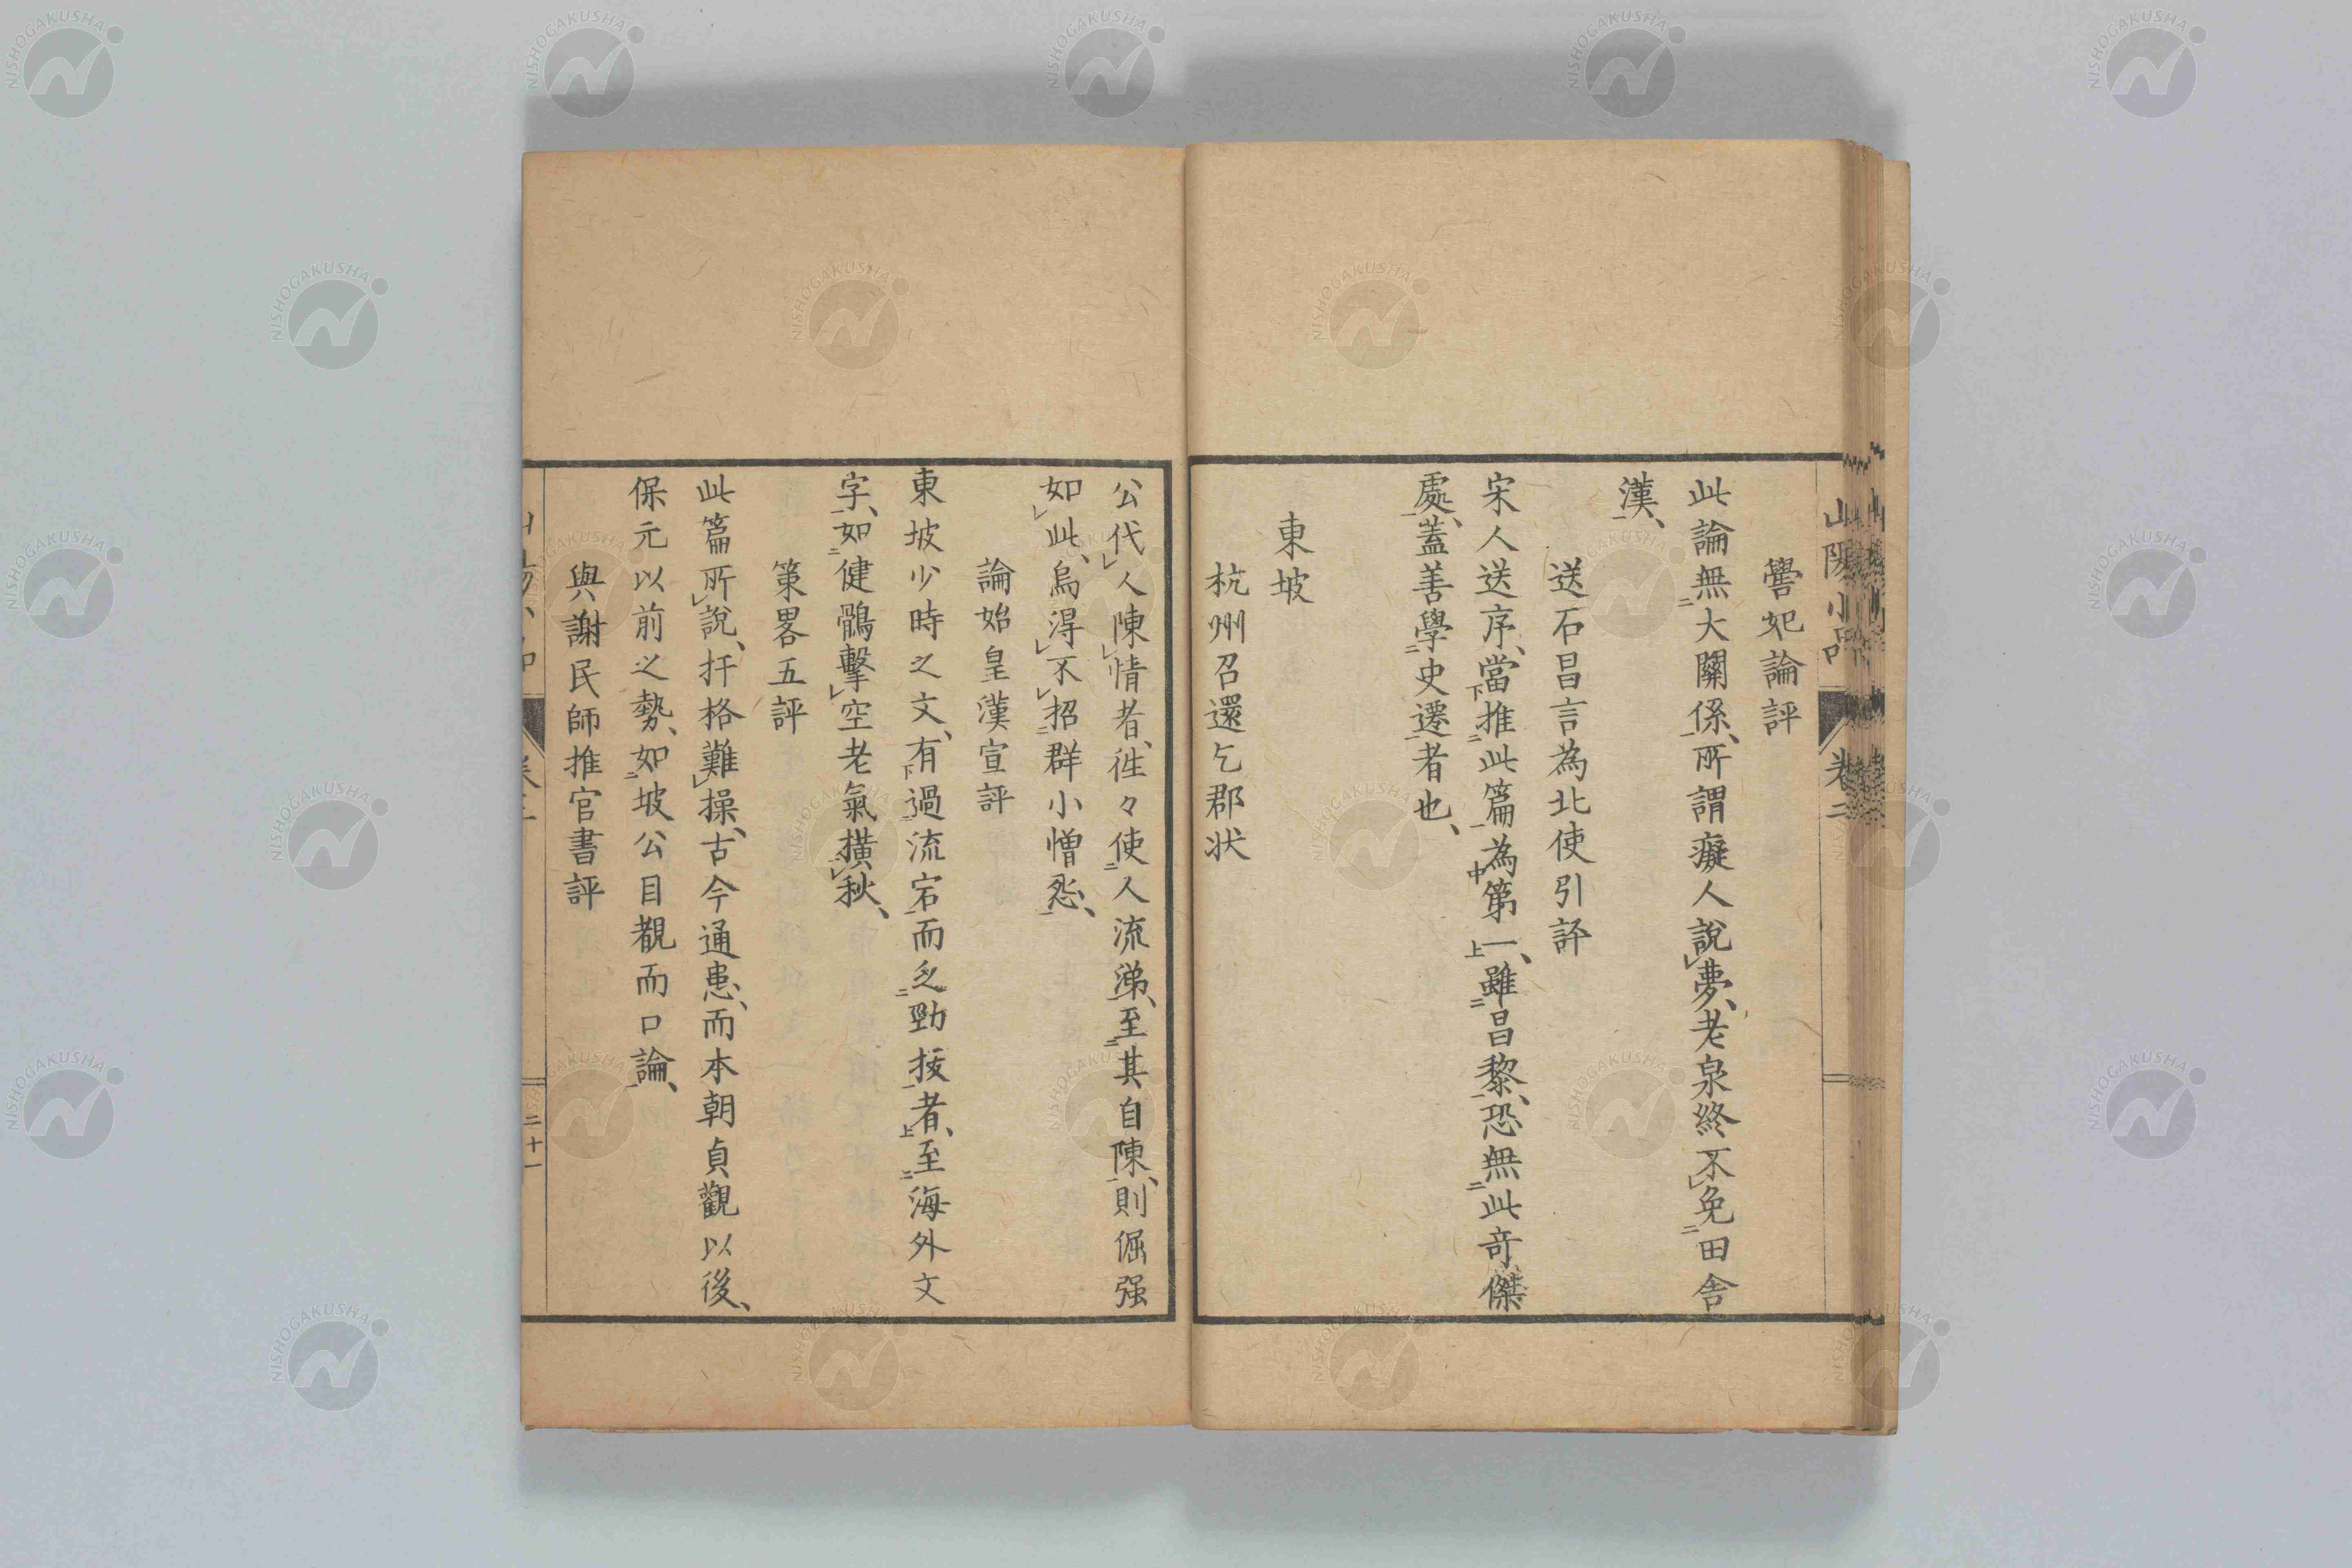 山陽小品 卷二
嚳妃論評
此論無大關係、所謂癡人說夢、老泉終不免田舍
漢、
送石昌言為北使引評
宋人送序、當推此篇為第一、雖昌黎、恐無此奇傑
處、蓋善學史遷者也、
東坡
杭州召還乞郡状
公代人陳情者、徃々使人流涕、至其自陳、則倔强
如此、烏得不招群小憎怨、
論始皇漢宣評
東坡少時之文、有過流宕而乏勁拔者、至海外文
字、如健鶻擊空老氣橫秋、
策畧五評
此篇所說、扞格難操、古今通患、而本朝貞觀以後、
保元以前之勢、如坡公目覩而口論、
與謝民師推官書評
二十一
NISHOGAKUSHA